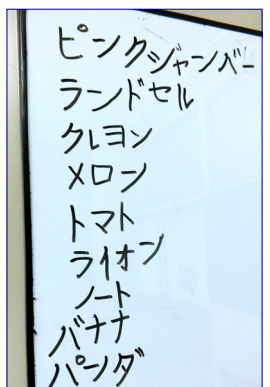 ピンクジャンバー
ランドセル
クレヨン
メロン
トマト
ライオン
ノート
バナナ
パンダ